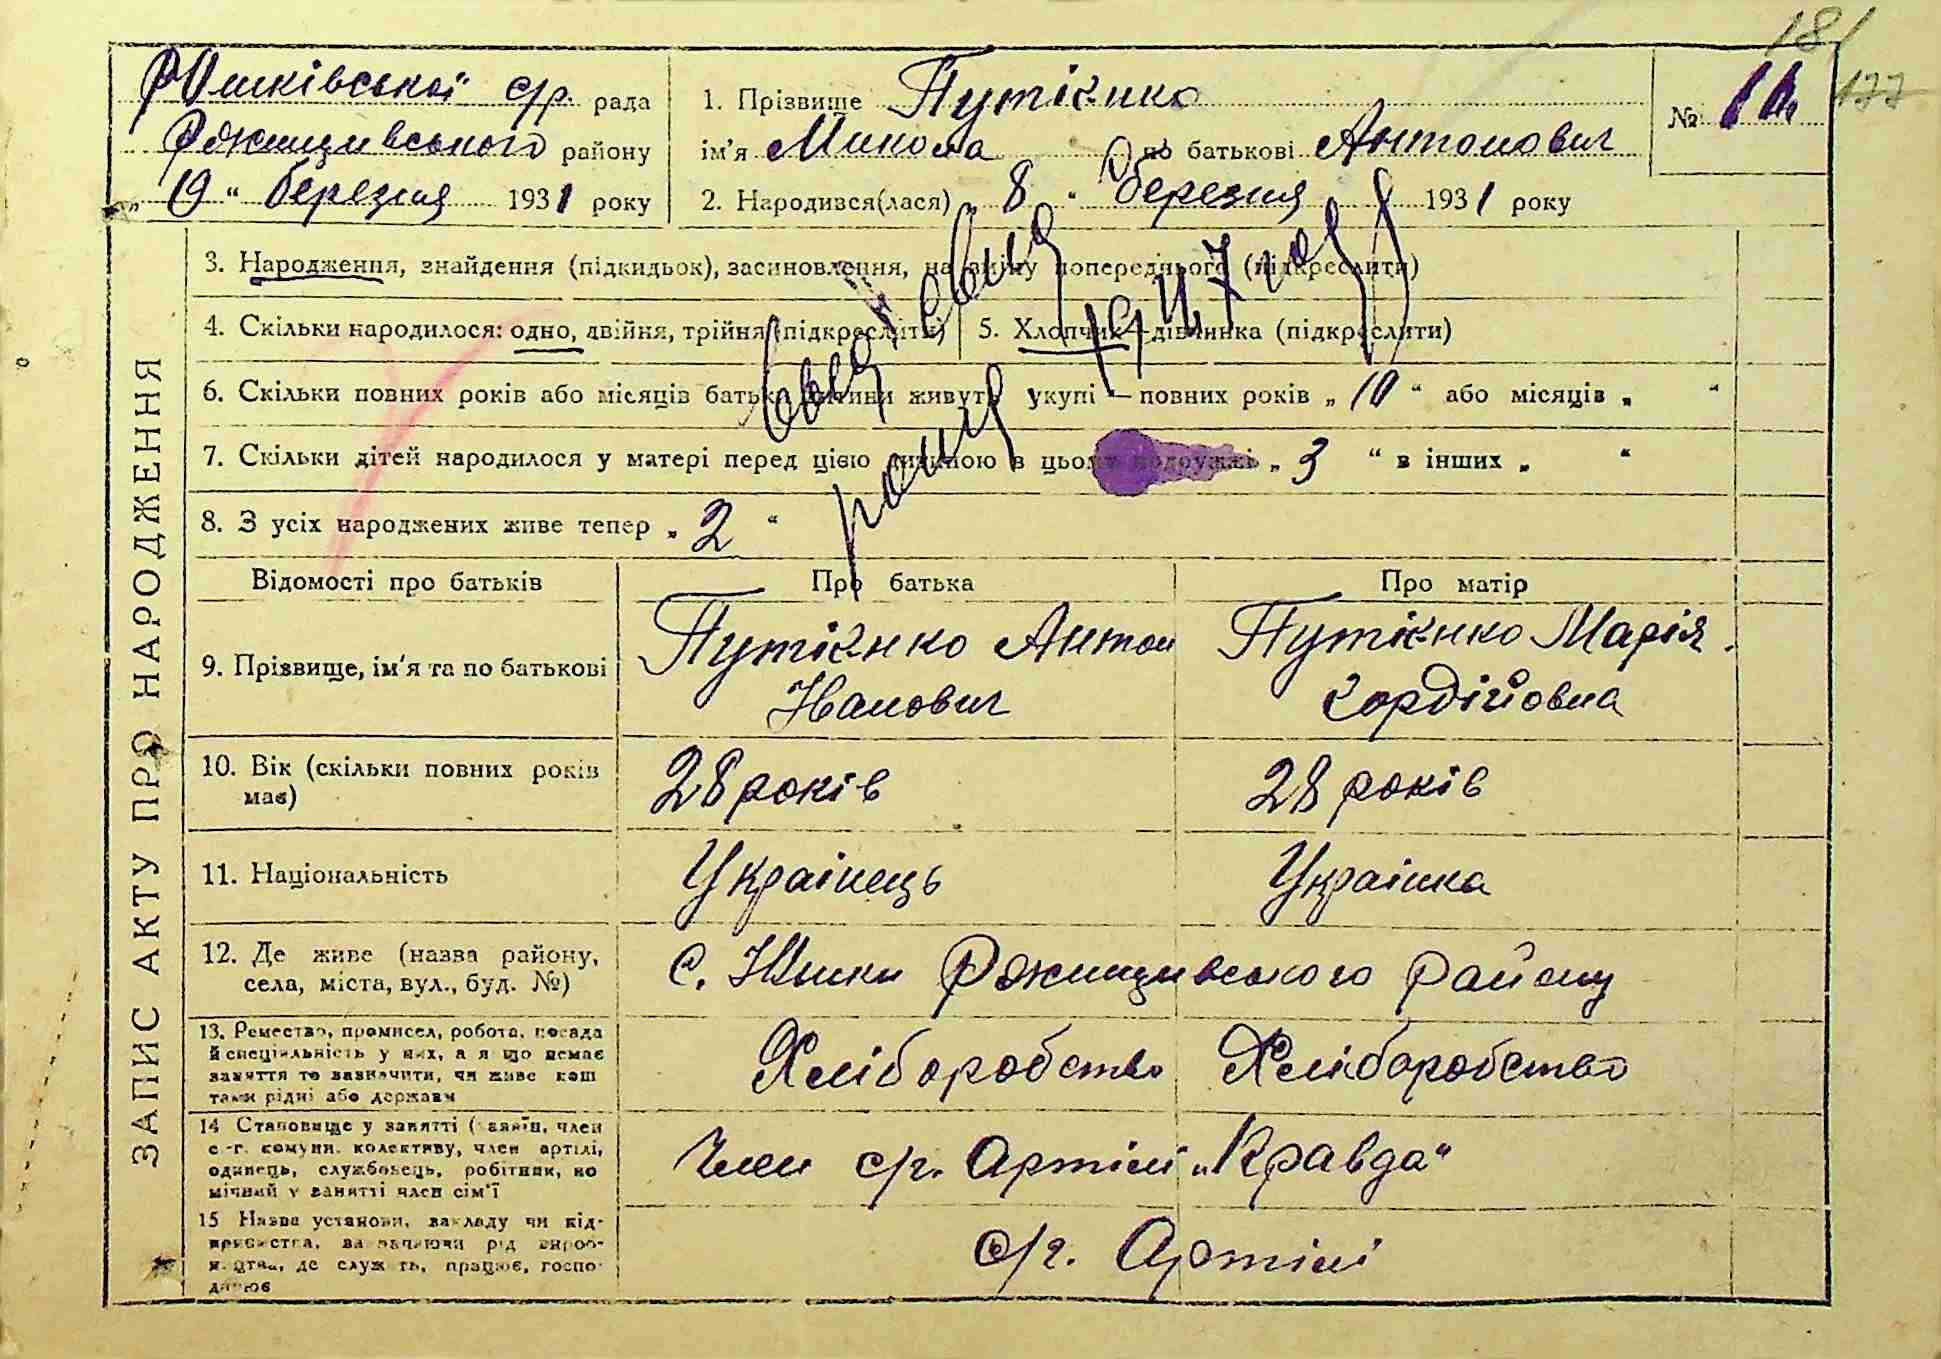 181
177
Юшківської с/р. рада
Ржищивського району
„ 19 “ березня 1931 року
1. Прізвище Путієнко
ім'я Микола по батькові Антонович
2. Народився(лася) „ 8 “ березня 1931 року
№ 11
ЗАПИС АКТУ ПРО НАРОДЖЕННЯ
3. Народження, знайдення (підкидьок), засиновлення, на зміну попереднього (підкреслити)
4. Скільки народилося: одно, двійня, трійня (підкреслити)
5. Хлопчик—дівчинка (підкреслити)
6. Скільки повних років або місяців батьки дитини живуть укупі — повних років „ 10 “ або місяців „ “
7. Скільки дітей народилося у матері перед цією дитиною в цьому подружжі „ 3 “ в інших „ “
8. З усіх народжених живе тепер „ 2 “
1947
Відомості про батьків
Про батька
Про матір
9. Прізвище, ім'я та по батькові
Путієнко Антон
Іванович
Путієнко Марія
Гордійовна
10. Вік (скільки повних років
має)
28 років
28 років
11. Національність
Українець
Українка
12. Де живе (назва району,
села, міста, вул., буд. №)
с. Юшки Ржищивського району
13. Ремество, промисел, робота, посада
й спеціальність у них, а якщо немає
заняття то зазначити, чи живе кош
тами рідні або держави
Хліборобство
Хліборобство
14 Становище у занятті (хазяїн, член
с-г. комуни, колективу, член артілі,
одинець, службовець, робітник, по
мічний у занятті член сім'ї
Член с/г. Артілі „Правда“
15 Назва установи, закладу чи під-
приємства, зазначаючи рід вироб-
ництва, де служить, працює, госпо-
дарює
с/г. Артілі